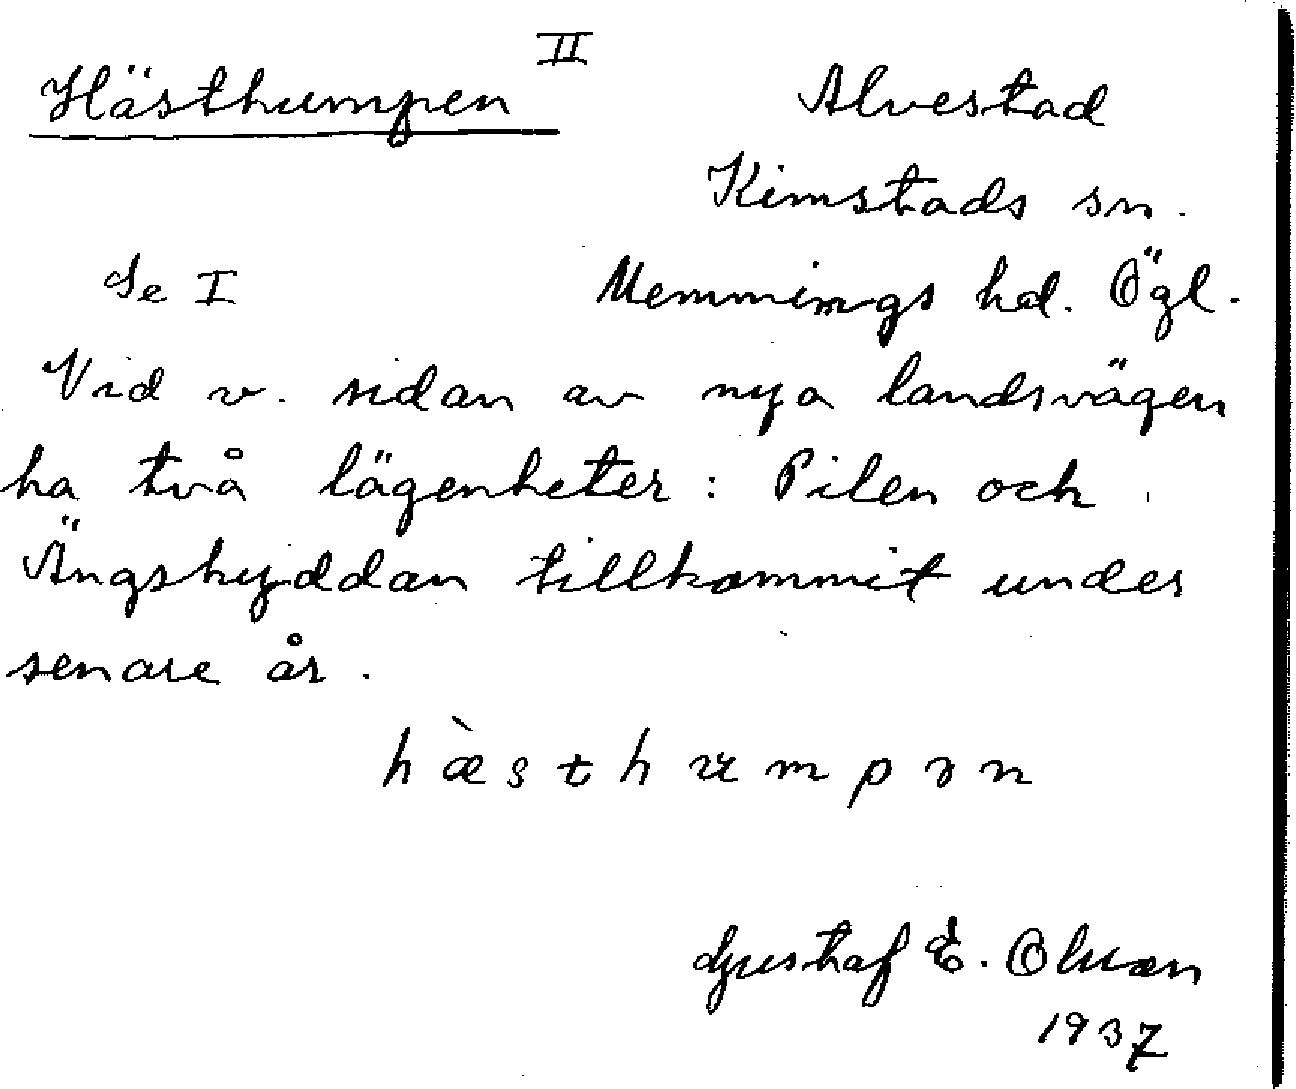 Hästhumpen II
Alvestad
Kimstads sn.
Se I
Memmings hd. Ögl.
Vid v. sidan av nya landsvägen
ha två lägenheter: Pilen och
Ängshyddan tillkommit under
senare år.
Gustaf E. Olsson
1937